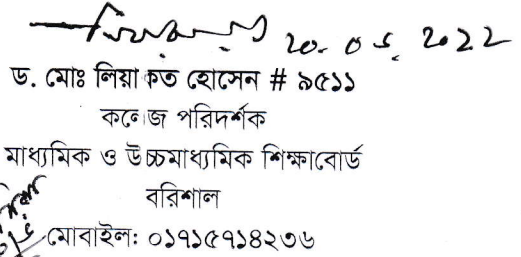 20. 05. 2022
ড. মোঃ লিয়াকত হোসেন # ৯৫১১
কলেজ পরিদর্শক
মাধ্যমিক ও উচ্চমাধ্যমিক শিক্ষাবোর্ড
বরিশাল
মোবাইল: ০১৭১৫৭১৪২৩৬